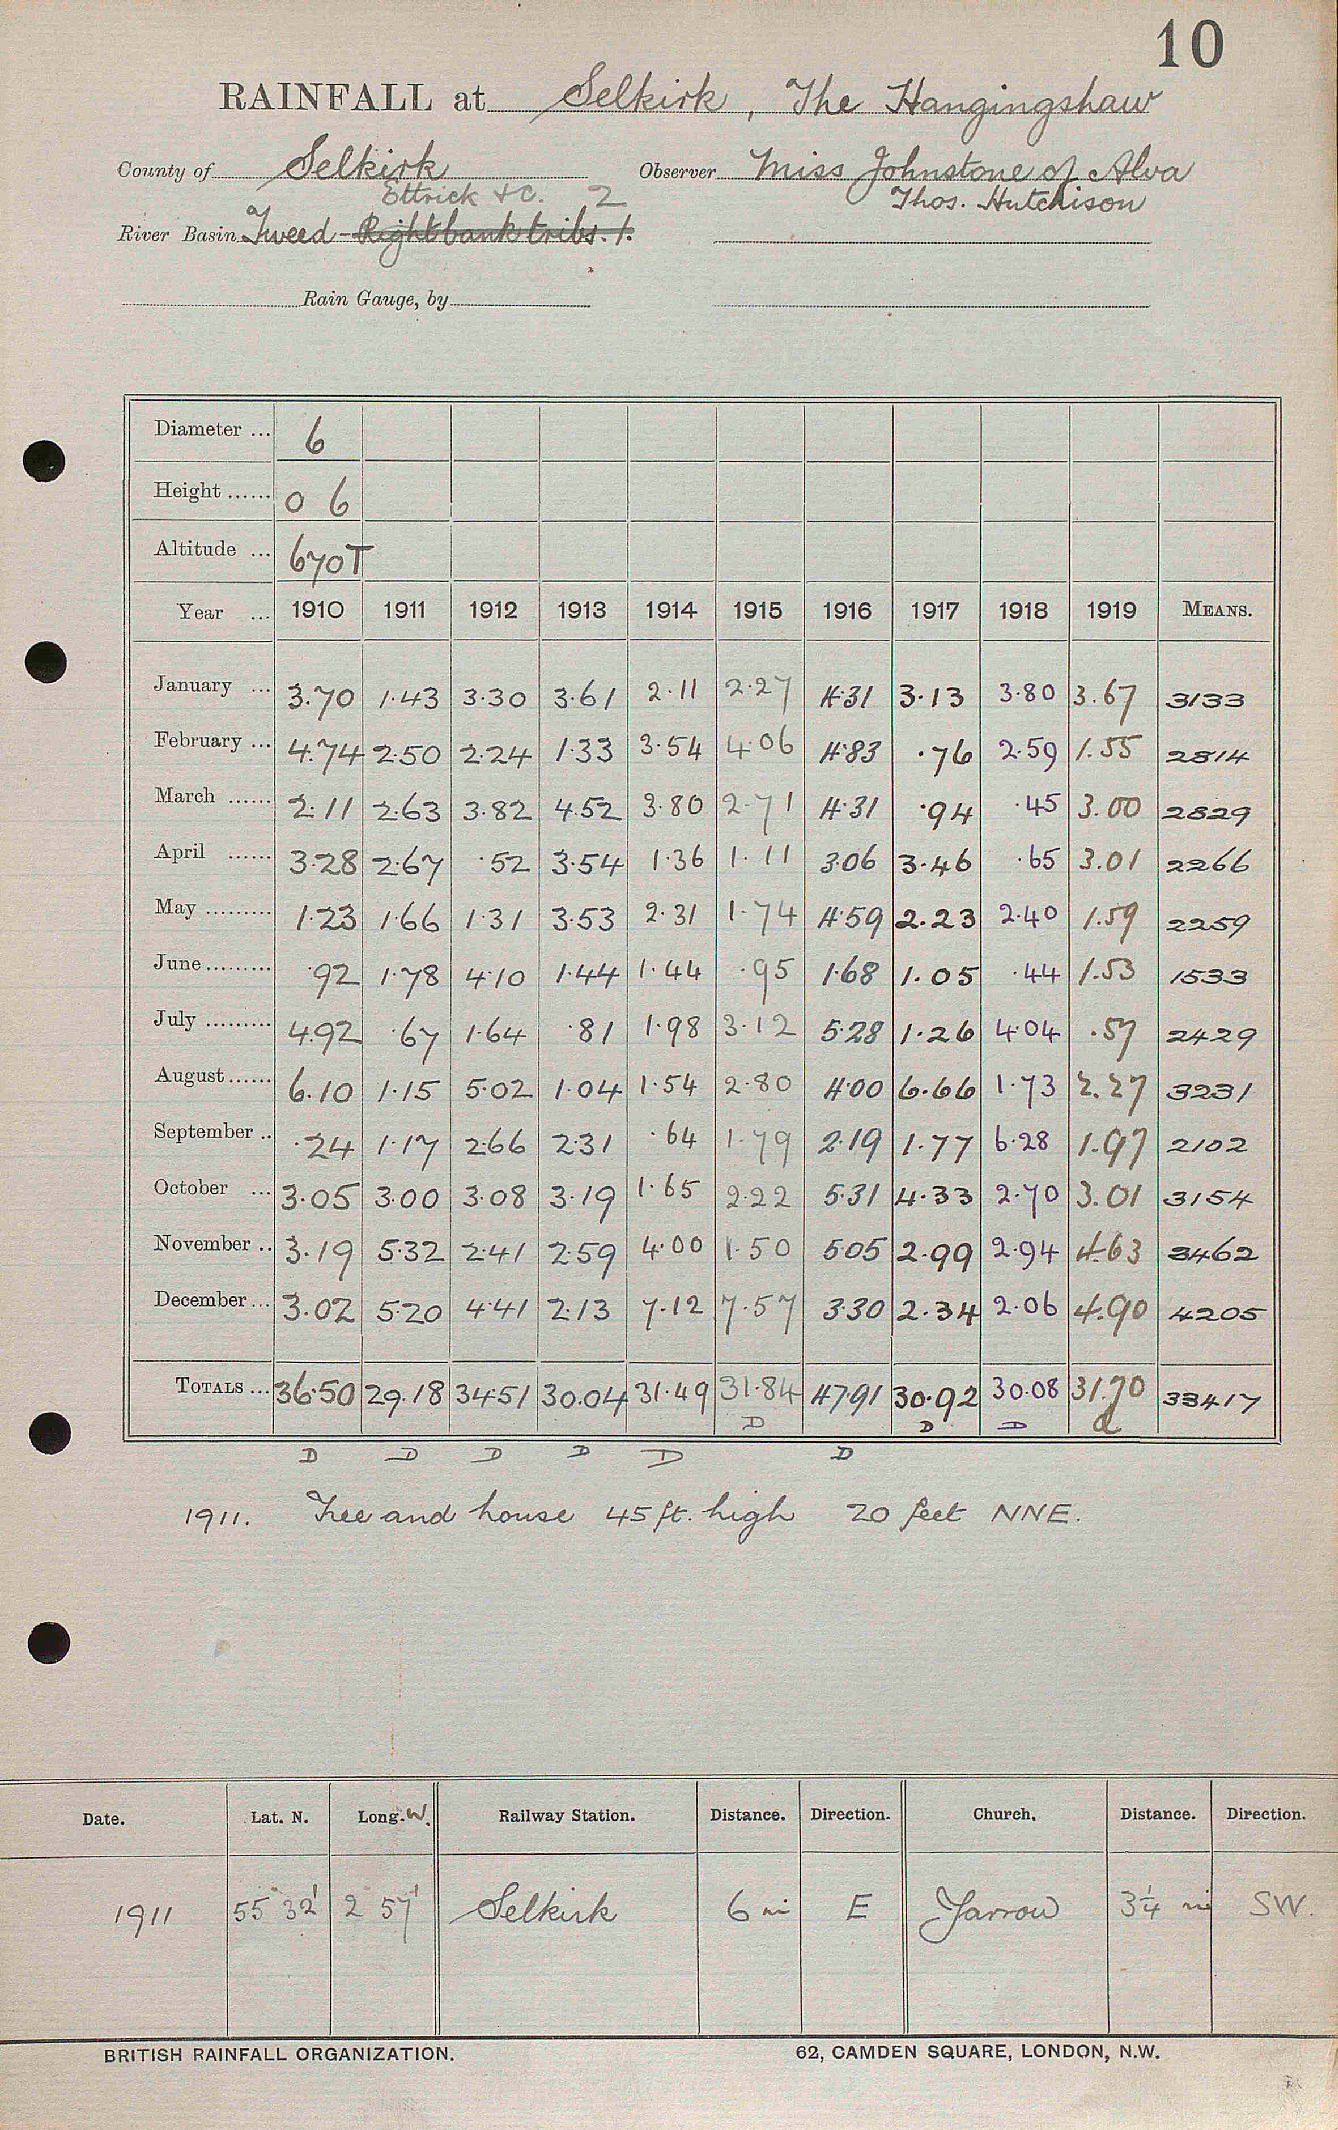 10
RAINFALL at Selkirk, The Hangingshaw
County of Selkirk Observer Miss Johnstone of Alva
Ettrick &c. 2 Thos. Hutchison
River Basin Tweed - Right bank tribs. 1.
Rain Gauge, by
Diameter ... 6
Height ...... 0 6
Altitude ... 670T
Year ... 1910 1911 1912 1913 1914 1915 1916 1917 1918 1919 MEANS.
January ... 3.70 1.43 3.30 3.61 2.11 2.27 4.31 3.13 3.80 3.67 3133
February ... 4.74 2.50 2.24 1.33 3.54 4.06 4.83 .76 2.59 1.55 2814
March ...... 2.11 2.63 3.82 4.52 3.80 2.71 4.31 .94 .45 3.00 2829
April ...... 3.28 2.67 .52 3.54 1.36 1.11 3.06 3.46 .65 3.01 2266
May ......... 1.23 1.66 1.31 3.53 2.31 1.74 4.59 2.23 2.40 1.59 2259
June ......... .92 1.78 4.10 1.44 1.44 .95 1.68 1.05 .44 1.53 1533
July ......... 4.92 .67 1.64 .81 1.98 3.12 5.28 1.26 4.04 .57 2429
August ...... 6.10 1.15 5.02 1.04 1.54 2.80 4.00 6.66 1.73 2.27 3231
September .. .24 1.17 2.66 2.31 .64 1.79 2.19 1.77 6.28 1.97 2102
October ... 3.05 3.00 3.08 3.19 1.65 2.22 5.31 4.33 2.70 3.01 3154
November .. 3.19 5.32 2.41 2.59 4.00 1.50 5.05 2.99 2.94 4.63 3462
December ... 3.02 5.20 4.41 2.13 7.12 7.57 3.30 2.34 2.06 4.90 4205
TOTALS ... 36.50 29.18 34.51 30.04 31.49 31.84 47.91 30.92 30.08 31.70 33417
D D D d
D D D D D D
1911. Tree and house 45 ft. high 20 feet NNE.
Date. Lat. N. Long. W. Railway Station. Distance. Direction. Church. Distance. Direction.
1911 55 32' 2 57' Selkirk 6 mi E Yarrow 3¼ mi SW.
BRITISH RAINFALL ORGANIZATION. 62, CAMDEN SQUARE, LONDON, N.W.